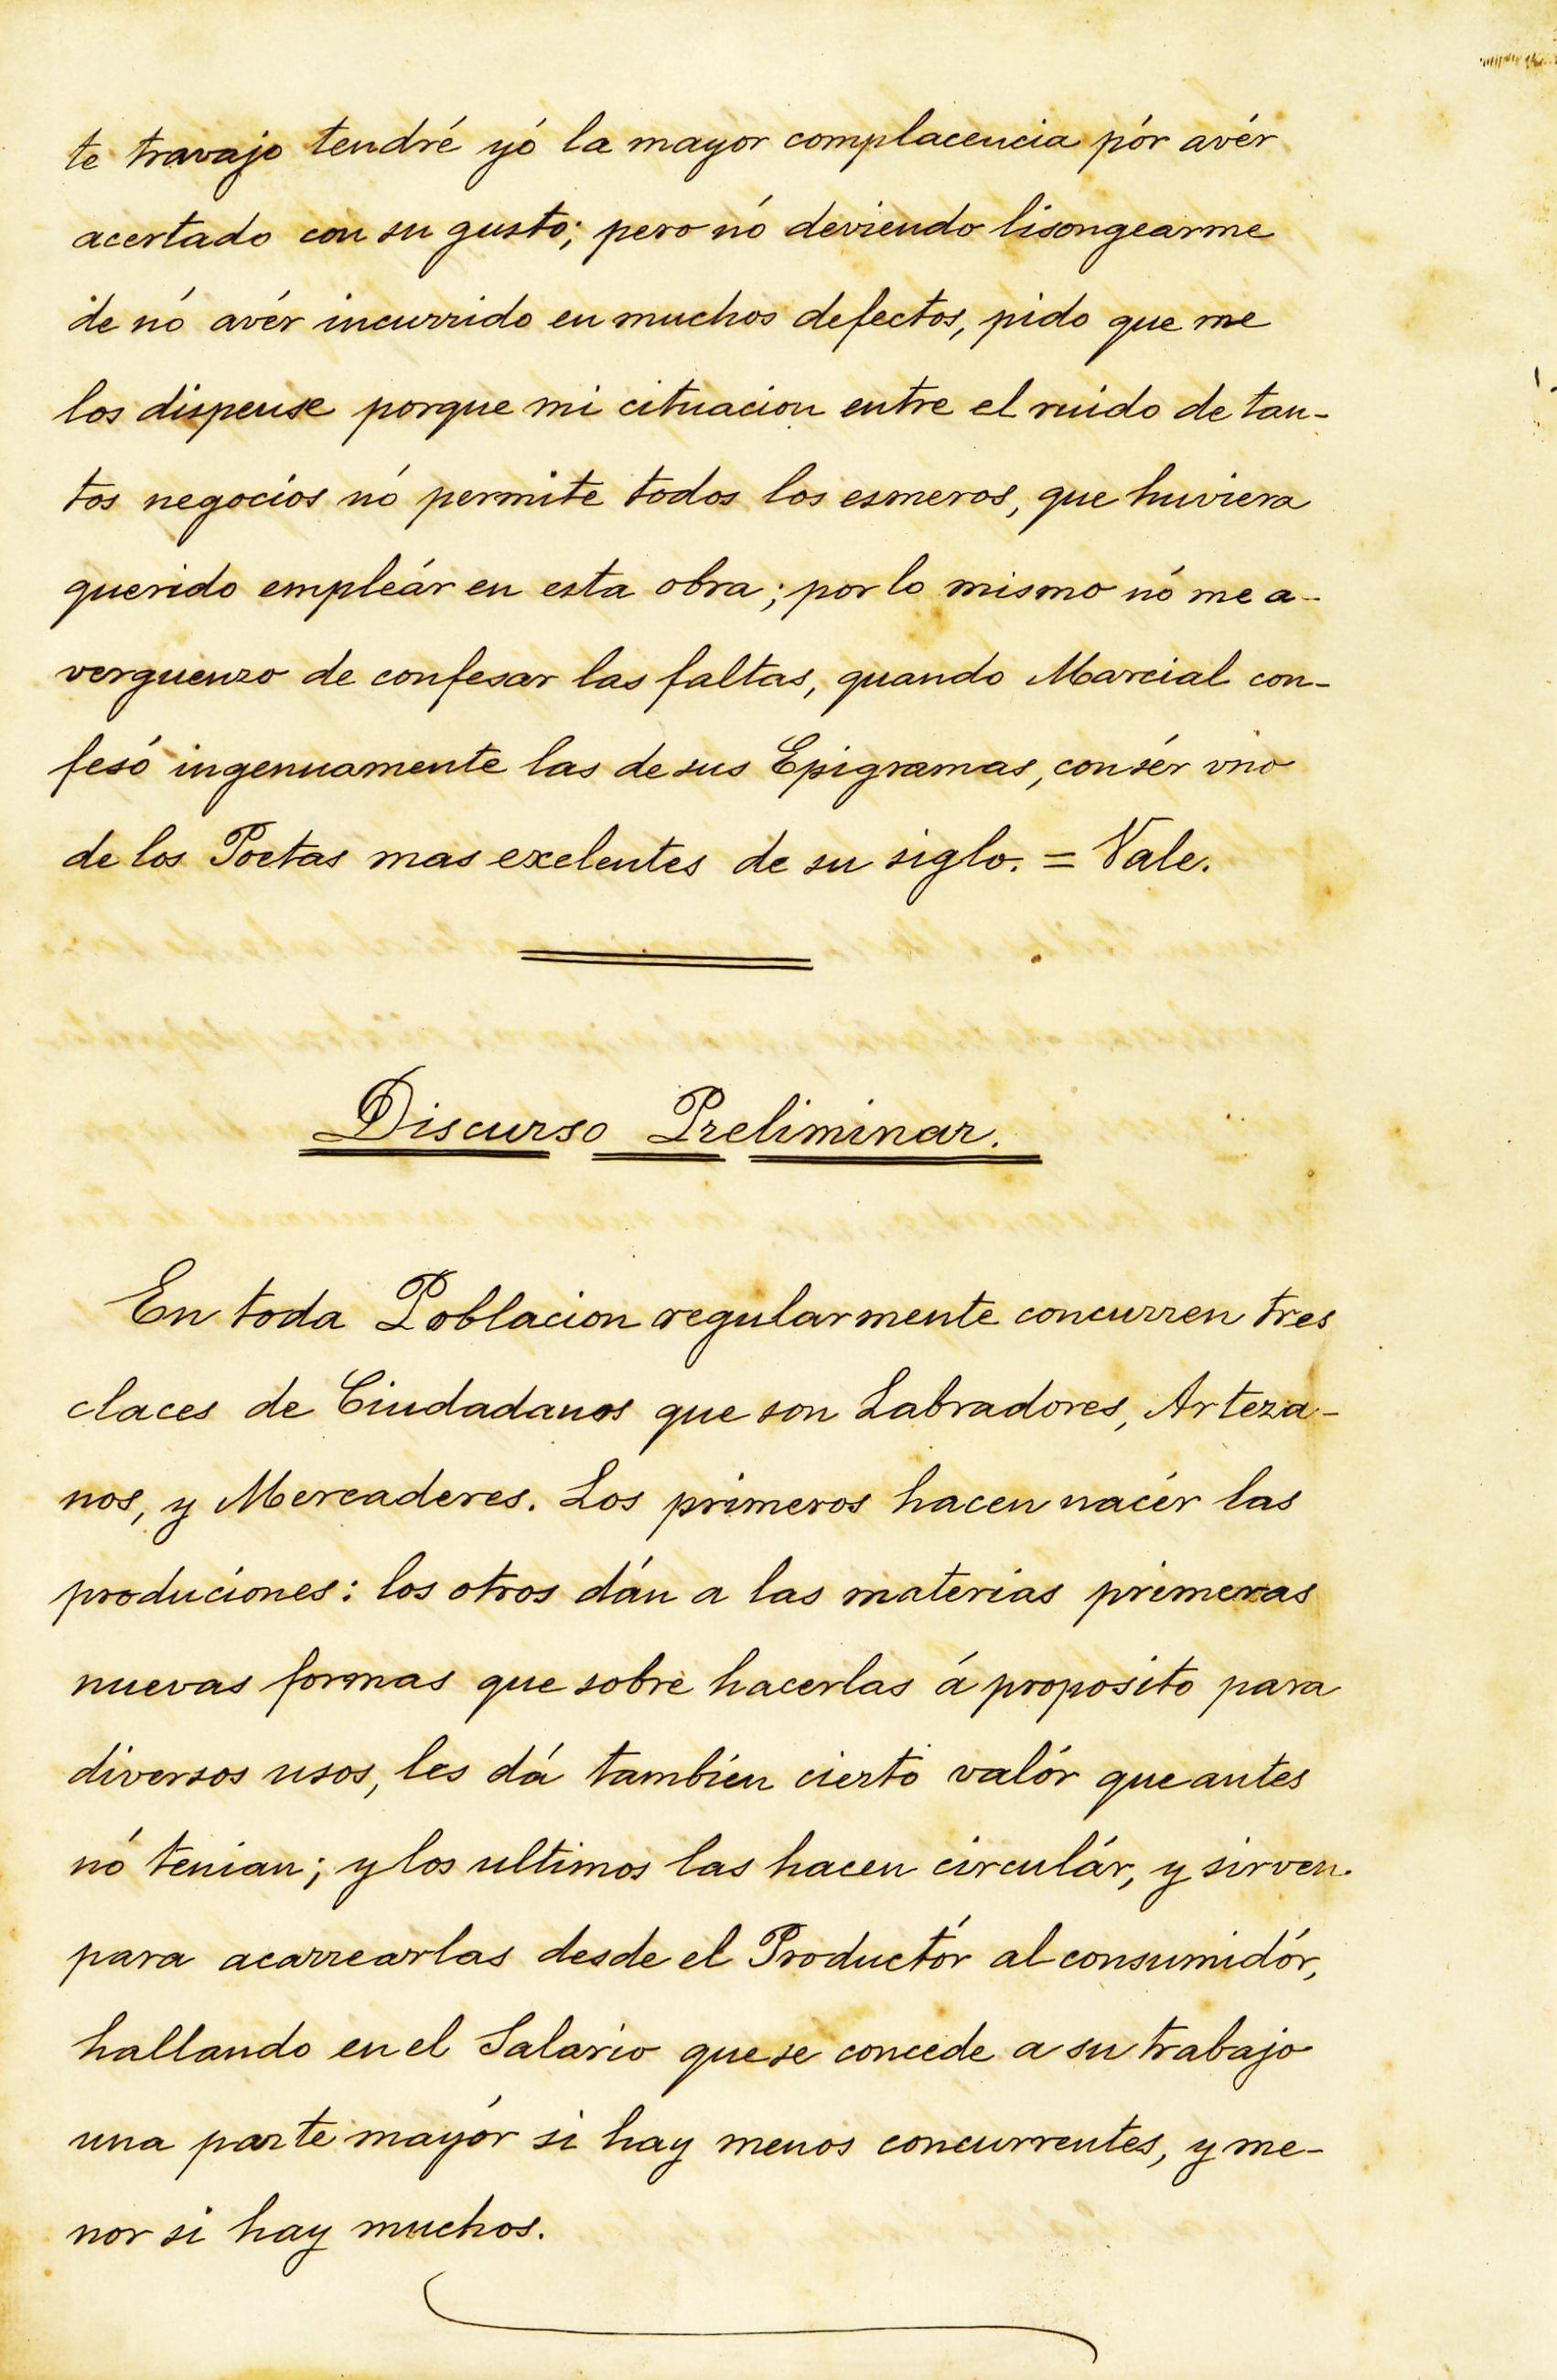 te travajo tendré yó la mayor complacencia pór avér
acertado con su gusto; pero nó deviendo lisongearme
de nó avér incurrido en muchos defectos, pido que me
los dispense porque mi cituacion entre el ruido de tan-
tos negocios nó permite todos los esmeros, que huviera
querido empleár en esta obra; por lo mismo nó me a-
verguenzo de confesar las faltas, quando Marcial con-
fesó ingenuamente las de sus Epigramas, con sér vno
de los Poetas mas exelentes de su siglo. = Vale.
Discurso Preliminar.
En toda Poblacion regularmente concurren tres
claces de Ciudadanos que son Labradores, Arteza-
nos, y Mercaderes. Los primeros hacen nacér las
produciones: los otros dán a las materias primeras
nuevas formas que sobre hacerlas á proposito para
diversos usos, les dá tambien cierto valór que antes
nó tenian; y los ultimos las hacen circulár, y sirven
para acarrearlas desde el Productór al consumidór,
hallando en el Salario que se concede a su trabajo
una parte mayór si hay menos concurrentes, y me-
nor si hay muchos.